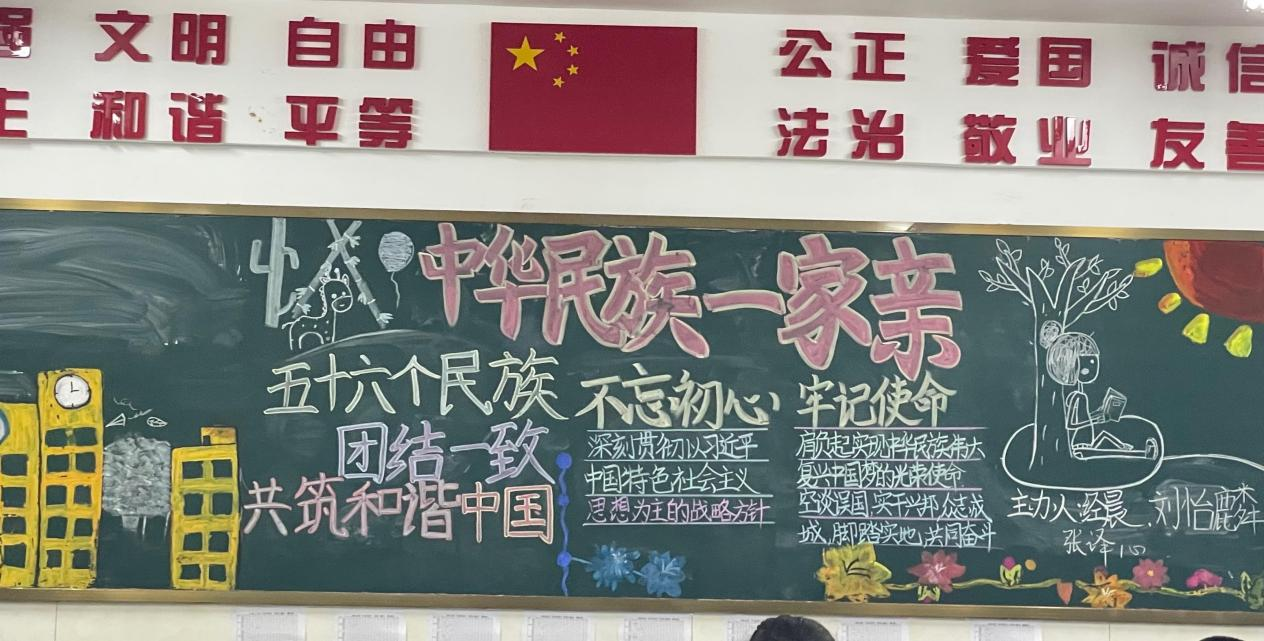 文明 自由 公正 爱国 诚信
和谐 平等 法治 敬业 友善
中华民族一家亲
五十六个民族
团结一致
共筑和谐中国
不忘初心
深刻贯彻以习近平
中国特色社会主义
思想为主的战略方针
牢记使命
肩负起实现中华民族伟大
复兴中国梦的光荣使命
空谈误国,实干兴邦,众志成
城,脚踏实地,共同奋斗
主办人:
刘怡
张译心